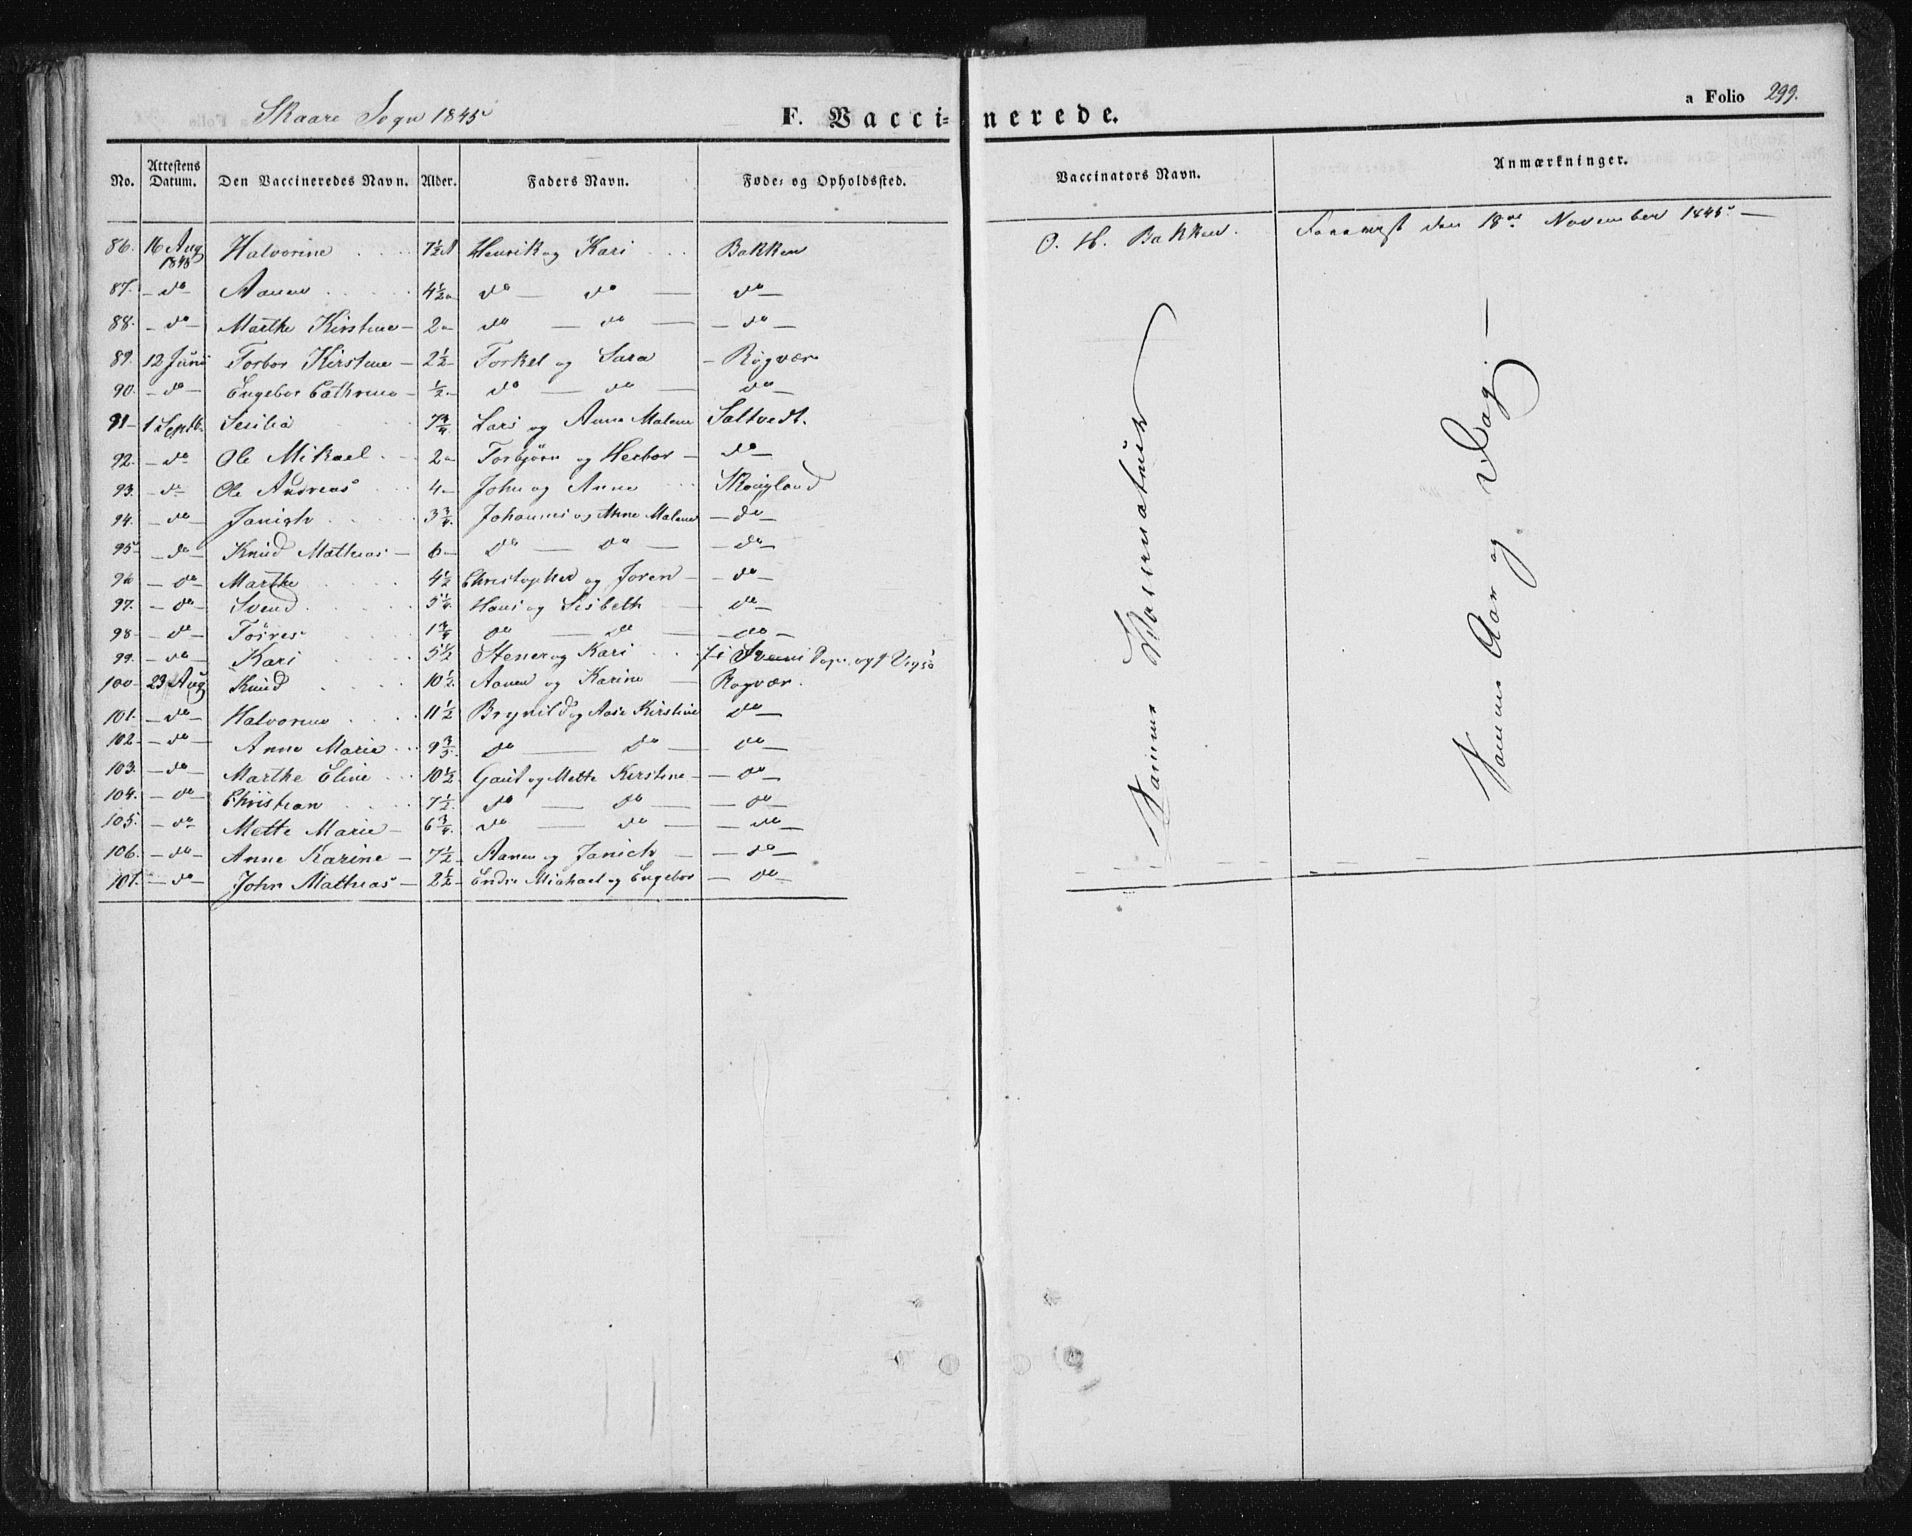 Skaare Sogn 1845
F. Vaccinerede.
a Folio 299.
No. Attestens Datum. Den Vaccineredes Navn. Alder. Faders Navn. Føde- og Opholdssted. Vaccinators Navn. Anmærkninger.
86. 16 Aug 1845 Halvorine 7½ A Henrik og Kari Bakken O. H. Bakken. Foreviist den 18de November 1845 —
87. — do — Aanen 4½ do — do — do —
88. — do — Marthe Kirstine — 2 do — do — — do —
89. 12 Juni Torbor Kirstine — 2½ Torkel og Sara — Røgvær
90. — do — Engebor Cathrine ½ do — do — do —
91 — 1 Septb. Sesilia 7¾ Lars og Anne Malene Saltvedt.
92. — do — Ole Mikael 2 Torbjörn og Herbor — do —
93. — do — Ole Andreas 4 John og Anne Skougland
94. — do — Janich 3¾ Johannes og Anne Malene — do —
95 — do — Knud Mathias — 6 do — do — — do —
96 — do Marthe 4½ Christopher og Joren — — do —
97. — do — Svend 5¼ Hans og Lisbeth do —
98 — do — Torres 1¾ do — do — — do —
99. — do — Kari 5½ Stener og Kari
100 — 23 Aug Knud 10½ Aanen og Karine — Rogvær.
101. — do — Halvorine 11½ Brynild og Aase Kirstine do —
102 — do — Anne Marie 9⅗ do — do — — do —
103. — do — Marthe Eline 10½ Gaut og Mette Kirstine — — do —
104. — do — Christian 7½ do — do — — do —
105. — do — Mette Marie — 6¾ do — do — — do —
106. — do — Anne Karine — 7½ Aanen og Janich — — do —
107. — do — John Mathias — 2½ Endre Michael og Engebor — do —
Samme Vaccinateur
Samme Aar og Dag. —